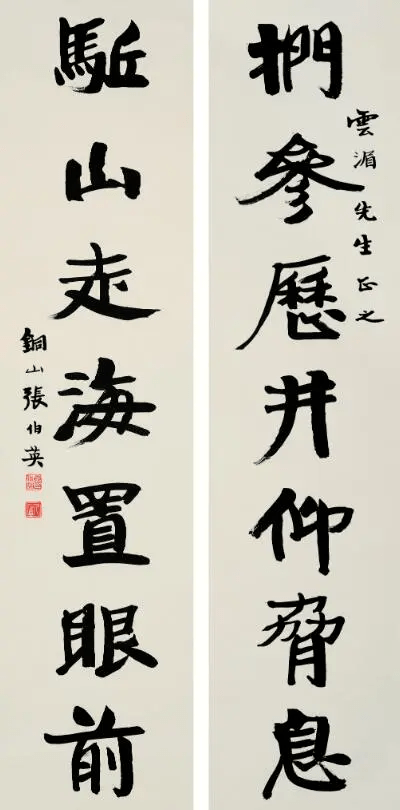 捫參歷井仰脅息
雲湄先生正之
駈山走海置眼前
銅山張伯英